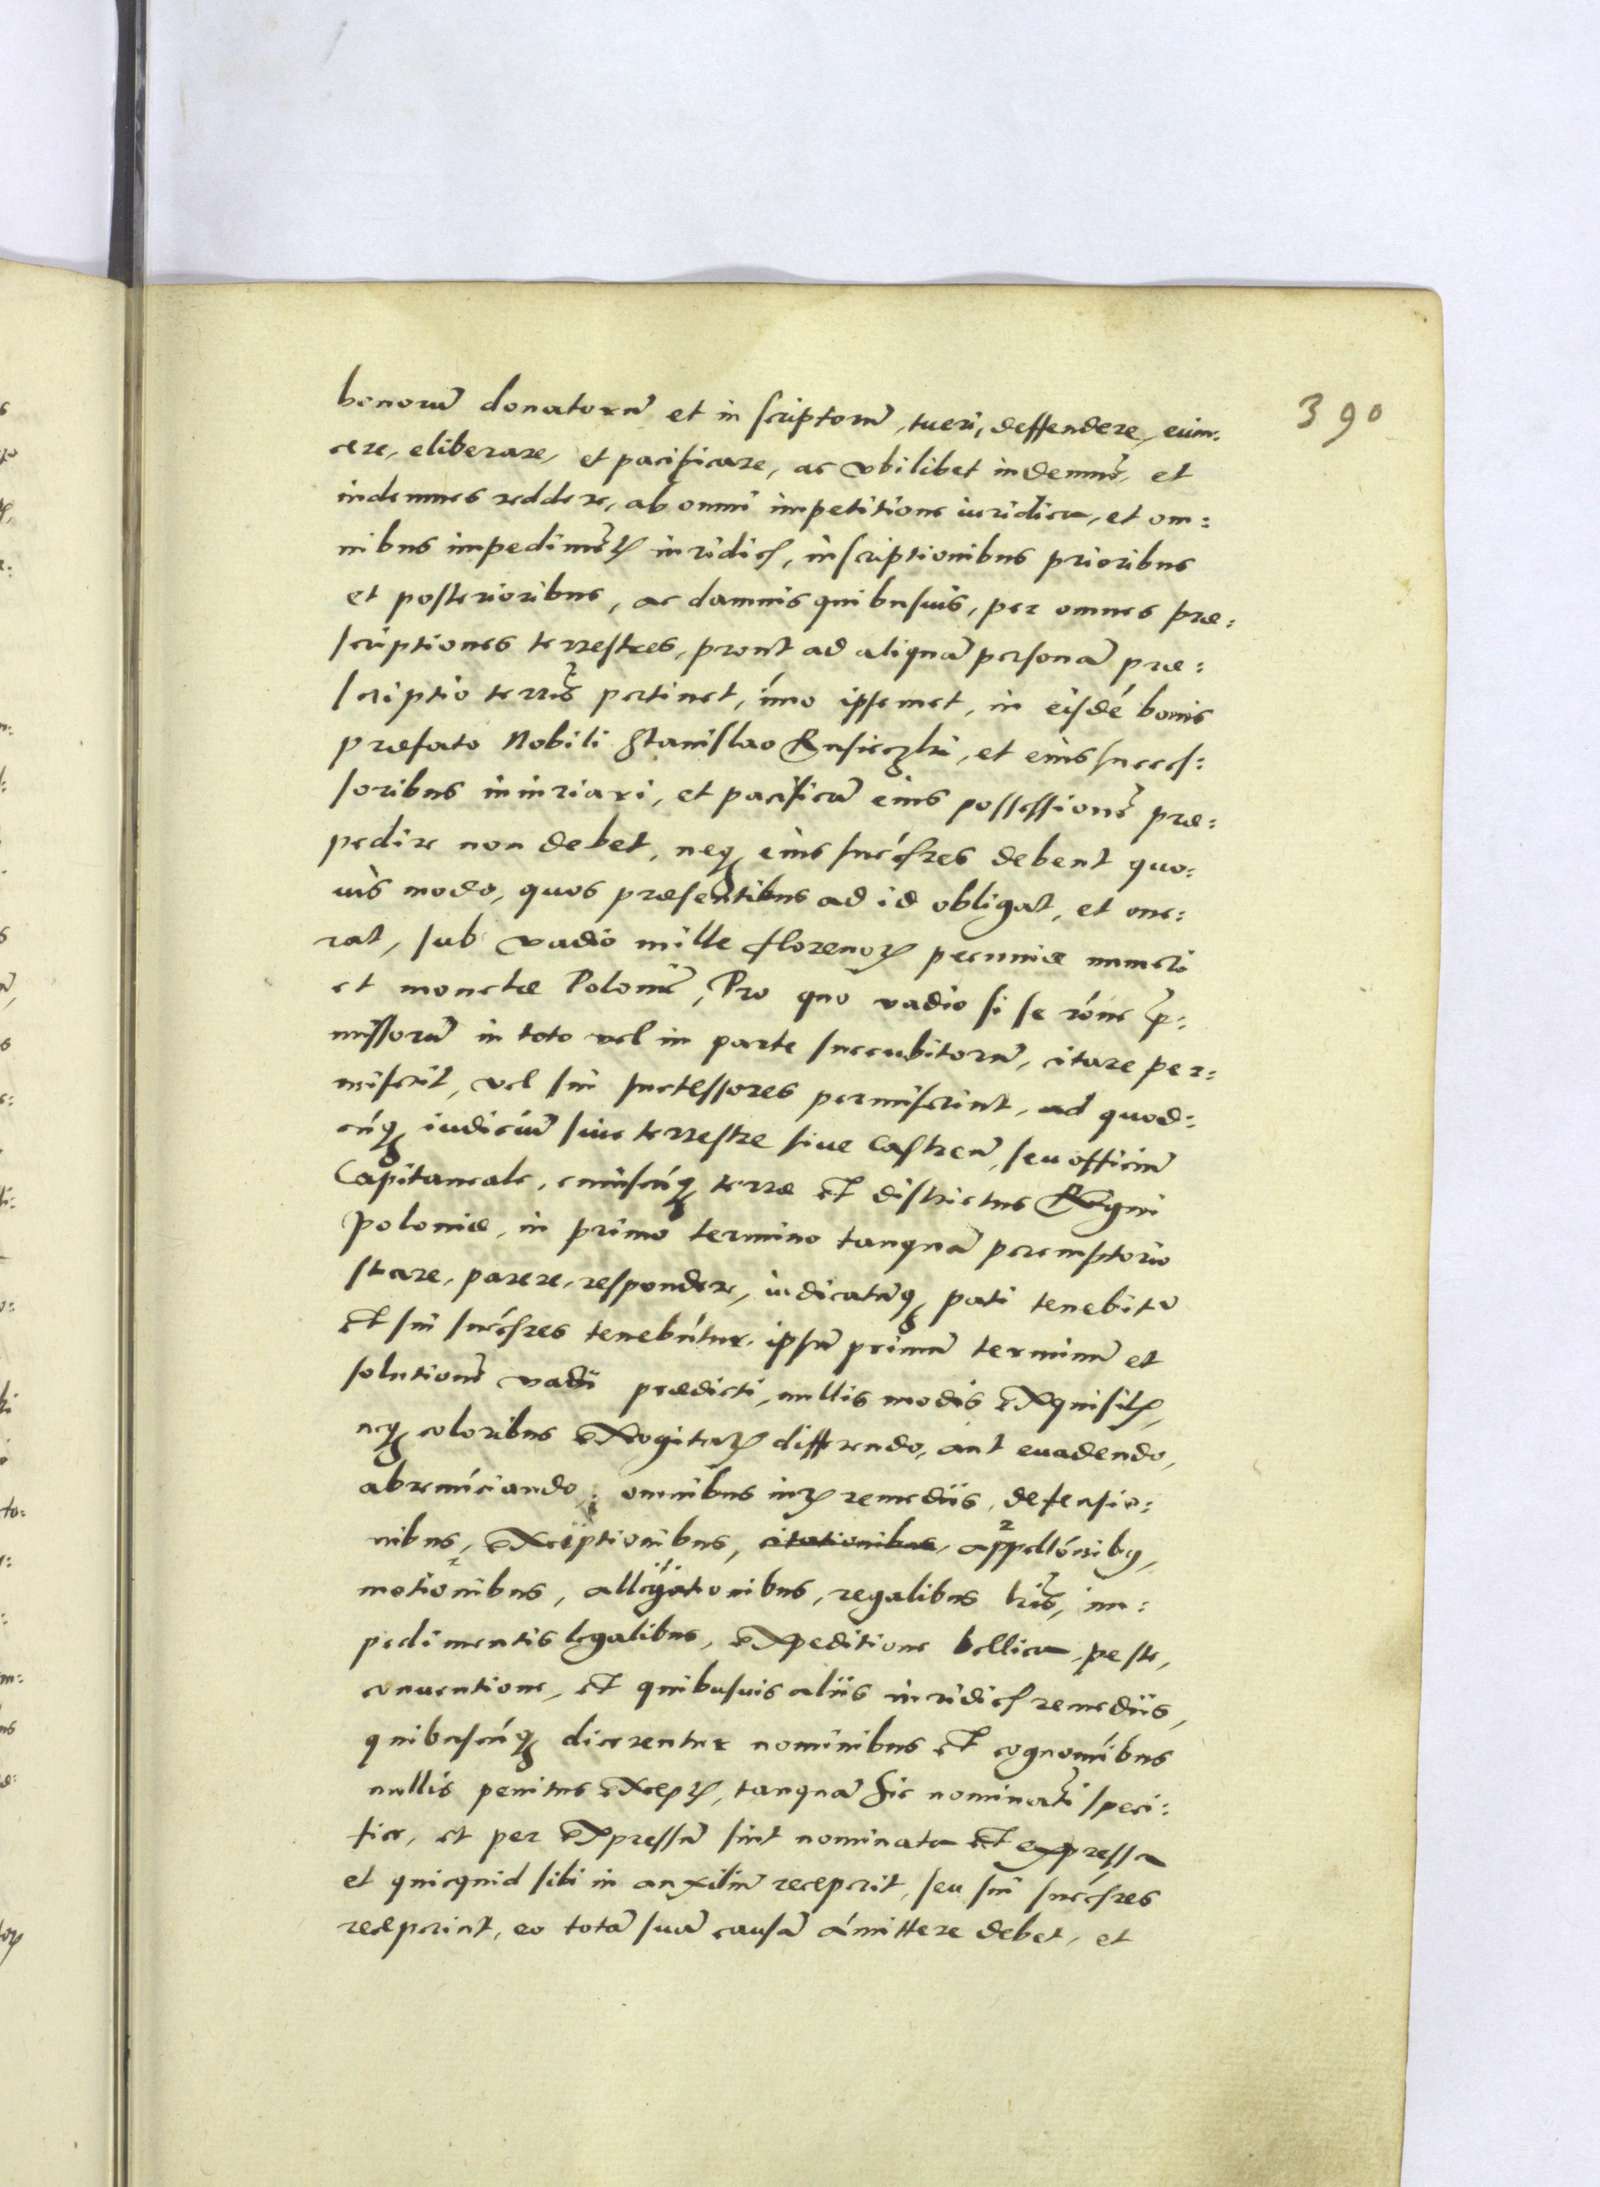 390
bonorū donatorū et inscriptorū, tueri, deffendere, euin:
cere, eliberare, et pacificare, ac vbilibet indemnē, et
indemnes reddere, ab omni impetitione iuridica, et om:
nibus impedimētꝭ iuridicꝭ, inscriptionibus prioribus
et posterioribus, ac damnis quibusuis, per omnes præ:
scriptiones terrestres, prout ad aliquā personā præ:
scriptio terrīs pertinet, imo ipsemet, in eisdē bonis
præfato Nobili Stanislao, et eius succes:
soribus iniuriari, et pacificā eius possessionē præ:
pedire non debet, neqꝫ eius succēsres debent quo:
uis modo, quos præsentibus ad id obligat, et one:
rat, sub vadio mille florenoꝝ pecuniæ numeri
et monetæ Polonīc, Pro quo vadio si se rōne p̄:
missorū in toto vel in parte succubitorū, citare per:
miserit, vel sui successores permiserint, ad quod:
cūqꝫ iudiciū siue terrestre siue Castren̄, seu officiū
Capitaneale, cuiuscūqꝫ terræ et districtus Regni
Poloniæ, in primo termino tanquā peremptorio
stare, parere, respondere, iudicatūqꝫ pati tenebitᵘ
et sui succēsres tenebūtur. ipsū primū terminū et
solutionē vadii prædicti, nullis modis exquisitꝭ,
neqꝫ coloribus excogitatꝭ differendo, aut euadendo,
abrenūciando: omnibus iuꝝ remediis, defensio:
nibus, exceptionibus, citationibus, appellōnibꝫ,
motionibus, allegationibus, regalibus lrīs, im:
pedimentis legalibus, expeditione bellica, peste,
conuentione, et quibusuis aliis iuridicꝭ remediis,
quibuscūqꝫ dicerentur nominibus et cognomībus
nullis penitus exceptꝭ, tanquā hic nominatī speci:
fice, et per expressū sint nominata et expressa
et quicquid sibi in auxiliū receperit, seu sui succēsres
receperint, eo totā suā causā amittere debet, et